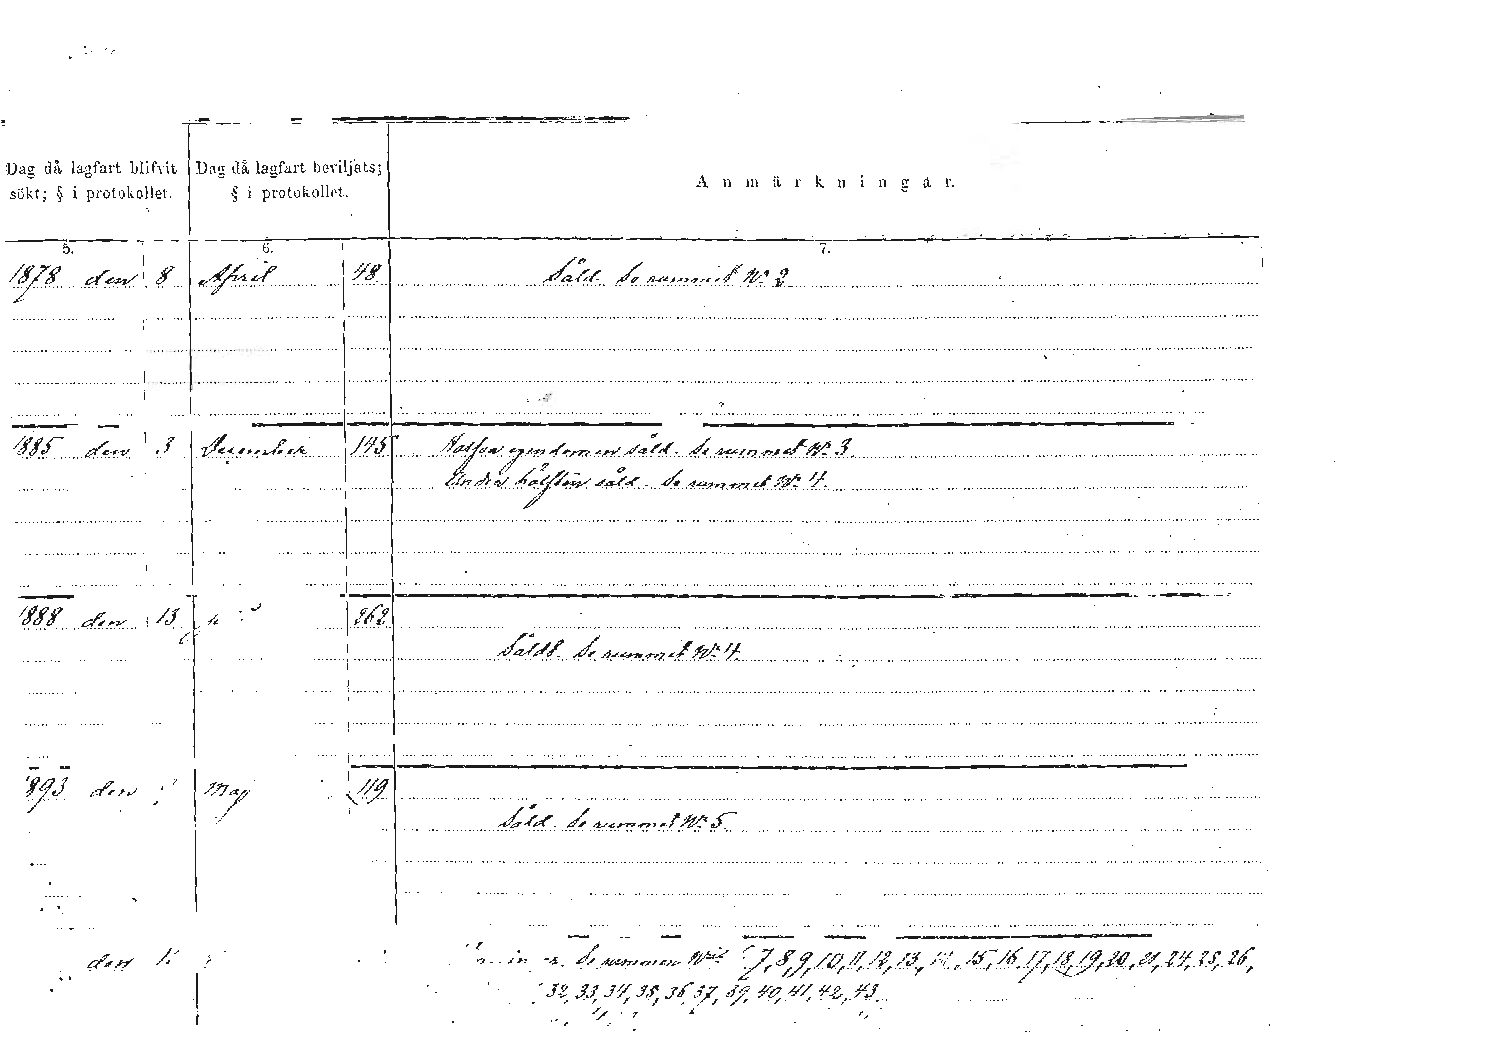 Dag då lagfart blifvit sökt; § i protokollet.
Dag då lagfart beviljats; § i protokollet.
Anmärkningar.
5. 6. 7.
1878 den 8 April 48 Såld. Se rummet No 2
1885 den 3 December 145 Halfva egendomen såld. Se rummet No 3.
Andra hälften såld. Se rummet No 4.
1888 den 13 262
Såldt. Se rummet No 4.
1893 den Maj 119
Såld. Se rummet No 5
den Se rummen 7, 8, 9, 10, 11, 12, 13, 15, 16, 17, 18, 19, 20, 21, 24, 25, 26,
32, 33, 34, 35, 36, 37, 39, 40, 41, 42, 43